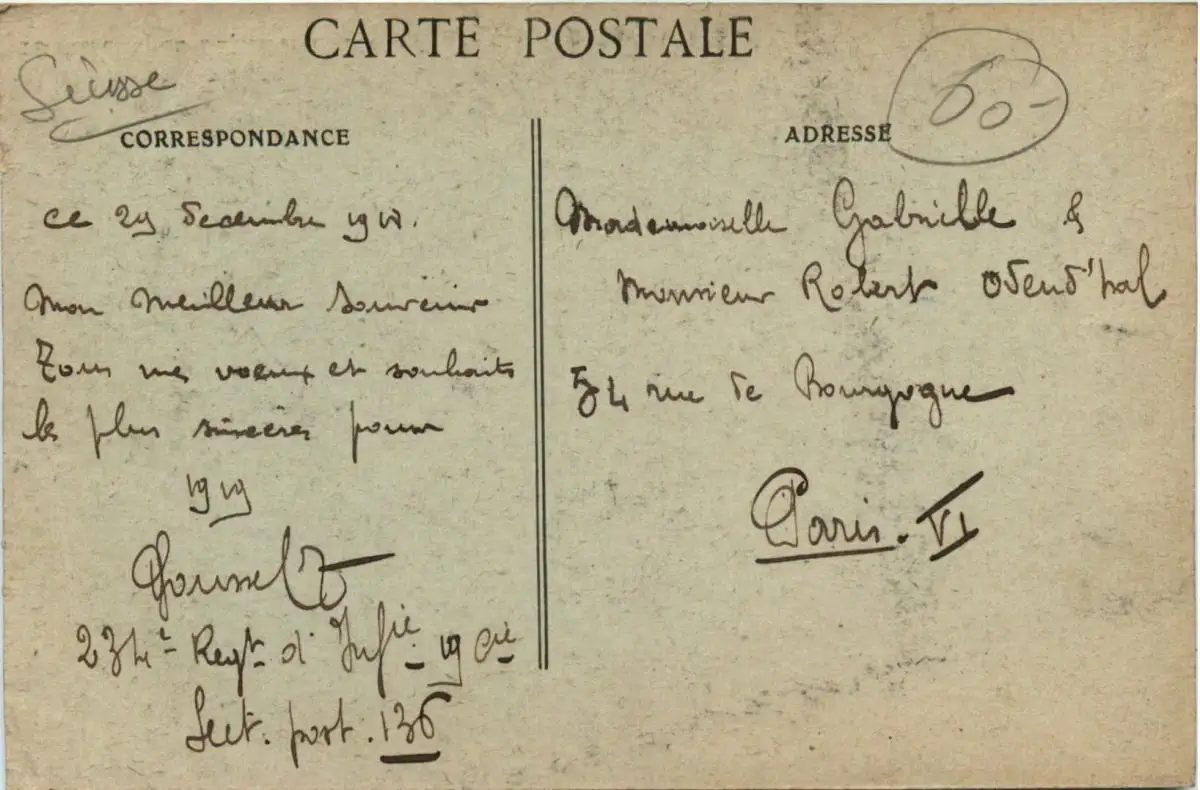 CARTE POSTALE
Suisse
60-
CORRESPONDANCE
ce 29 decembre 1918.
Mon meilleur souvenir
Tous mes voeux et souhaits
les plus sincères pour
1919
234e Regt. d'Infie 19 Cie
Sect. post. 136
ADRESSE
Mademoiselle Gabrielle &
Monsieur Robert Odend'hal
54 rue de Bourgogne
Paris. VI